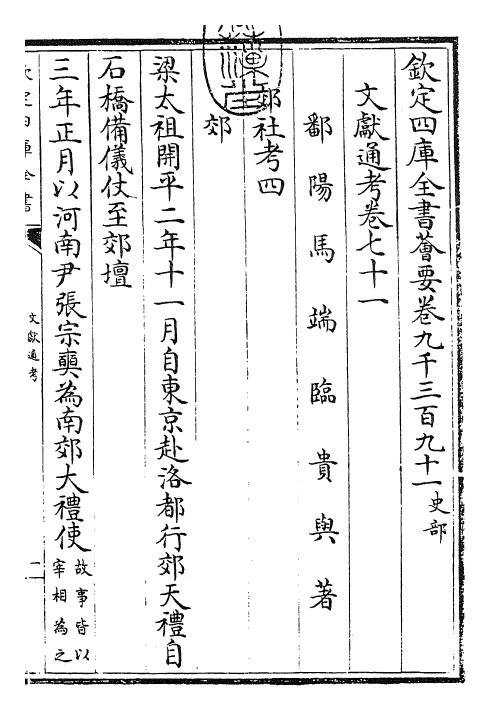 欽定四庫全書薈要卷九千三百九十一史部
文獻通考卷七十一
鄱陽馬端臨貴與著
郊社考四
郊
梁太祖開平二年十一月自東京赴洛都行郊天禮自
石橋備儀仗至郊壇
三年正月以河南尹張宗奭為南郊大禮使故事皆以宰相為之
欽定四庫全書
文獻通考